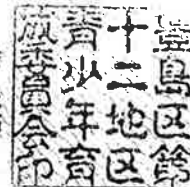 豊島区第
十二地区
青少年育
成委員会印